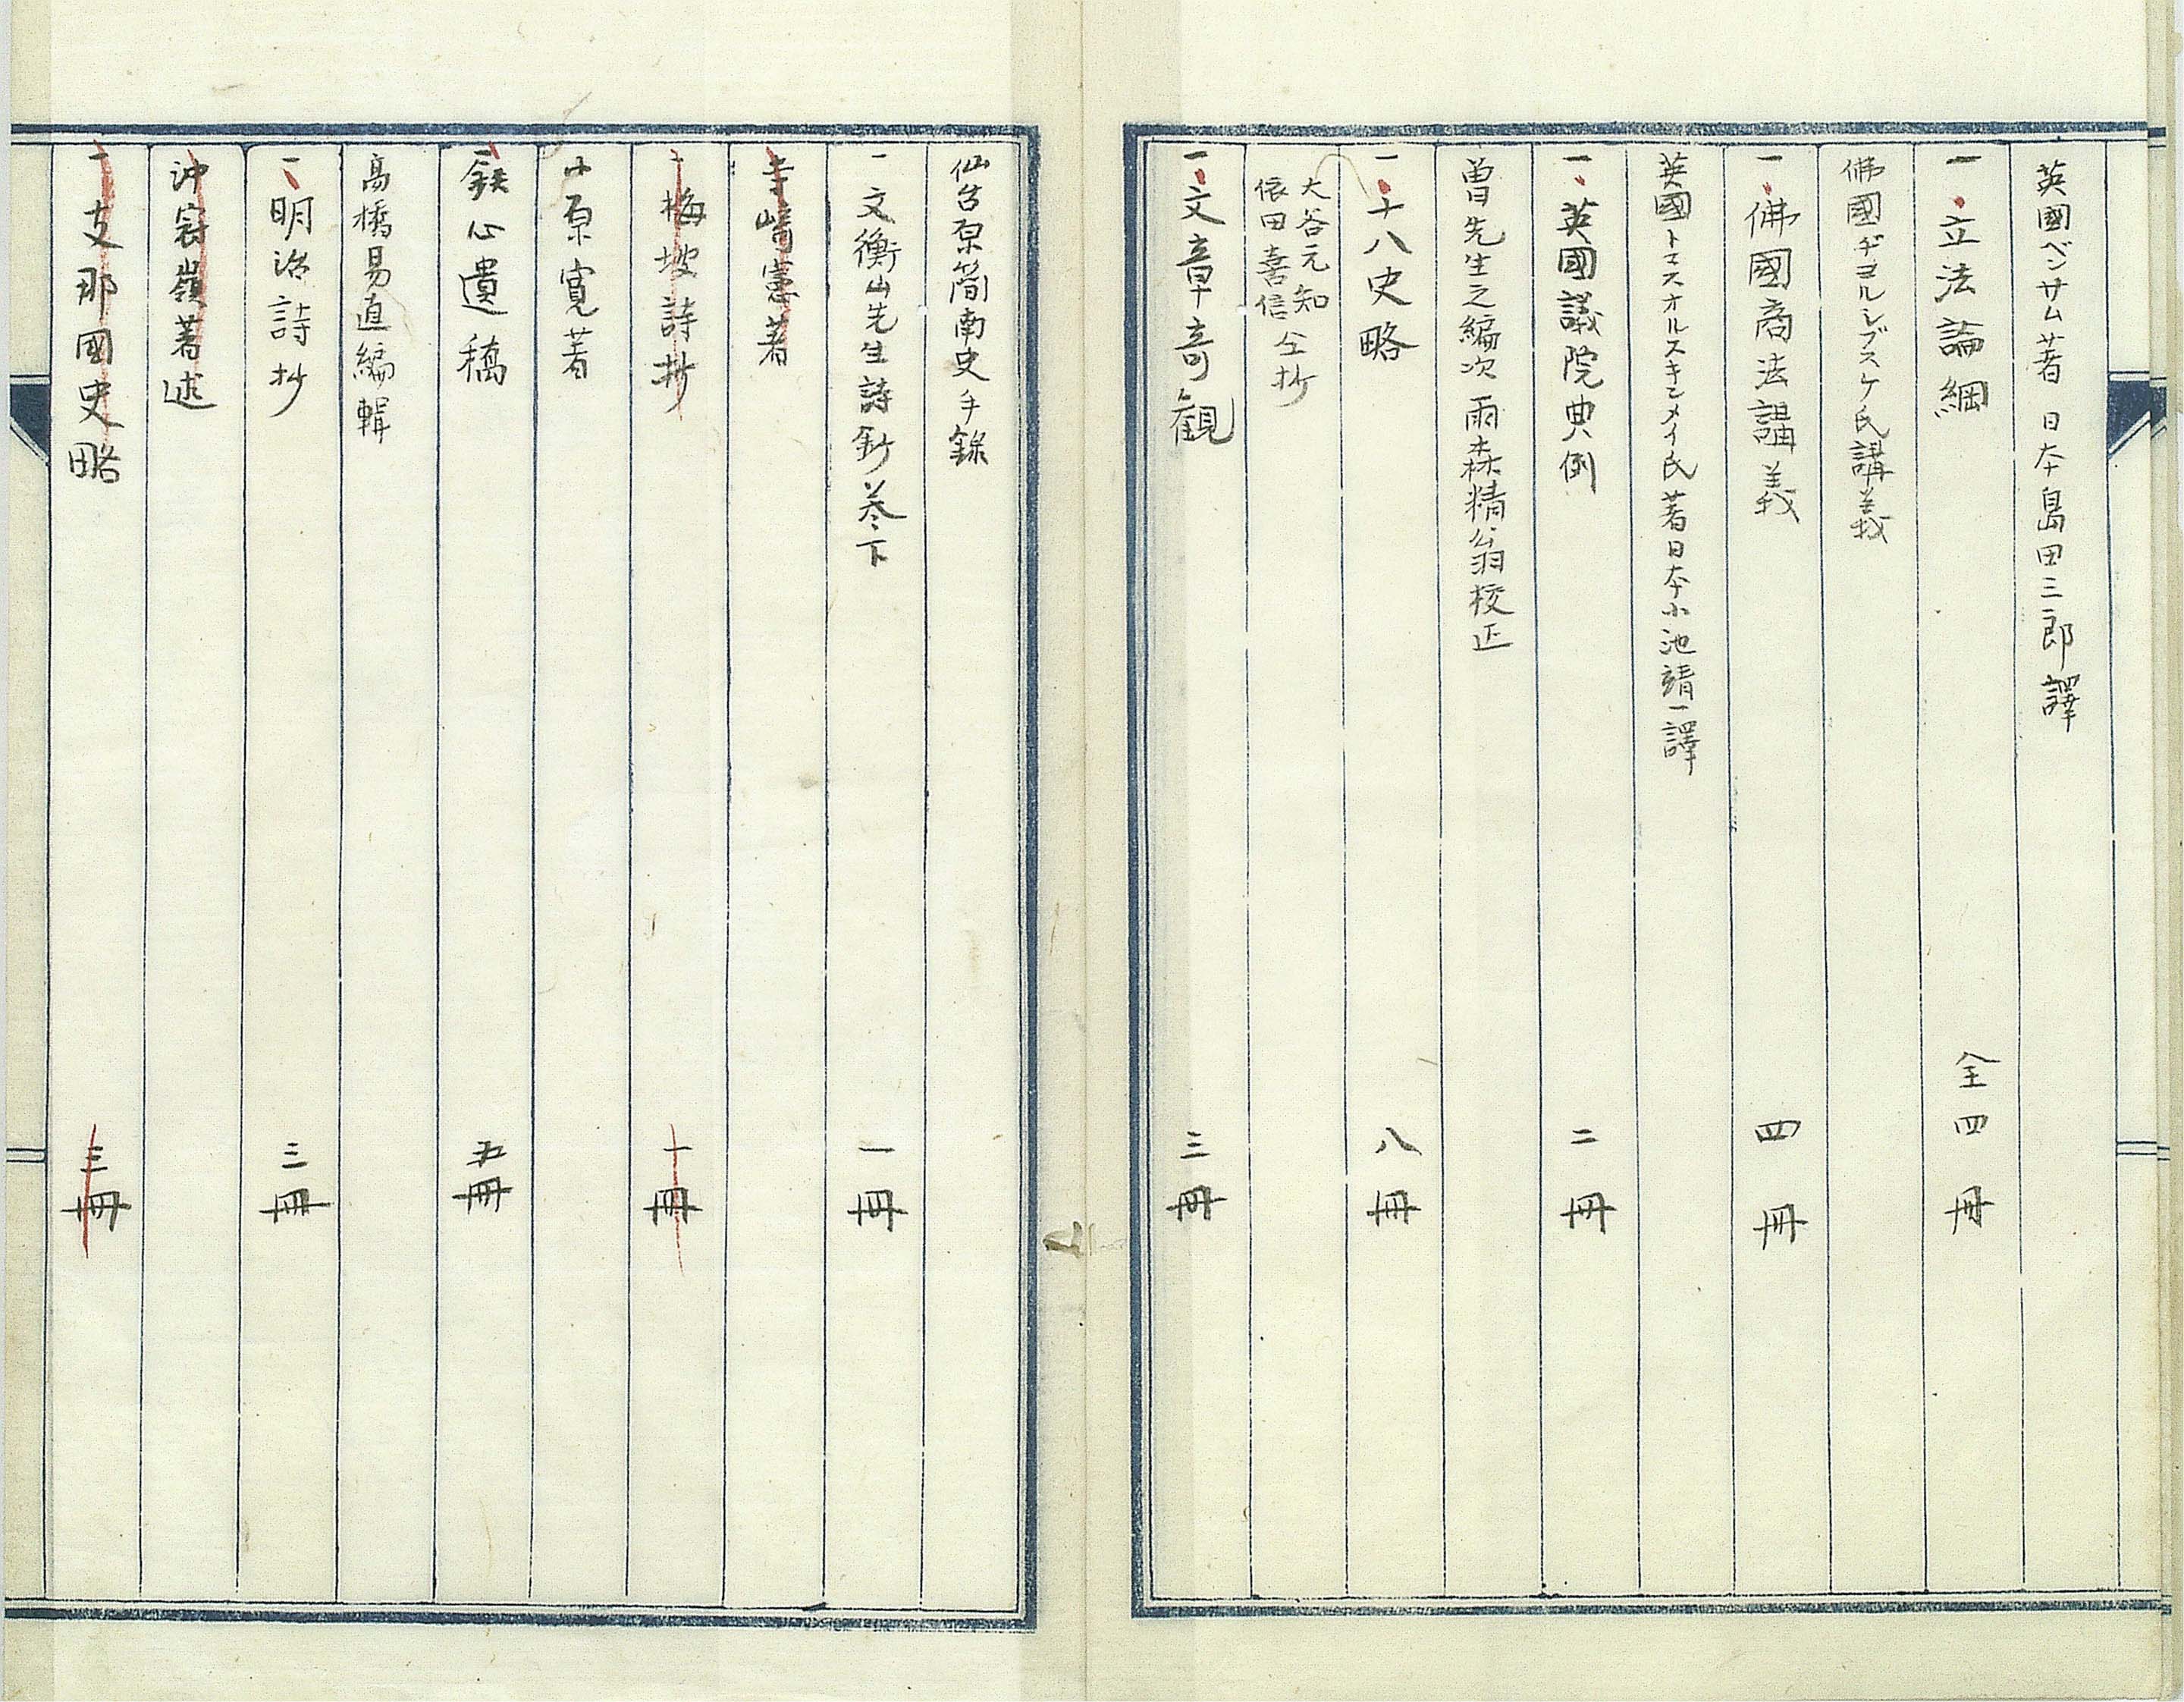 英國ベンサム著 日本島田三郎譯
一立法論綱 全四冊
佛國ヂヨルジブスケ氏講義
一佛國商法講義 四冊
英國トマスオルスキヱメイ氏著日本小池靖一譯
一英國議院典例 二冊
曽先生之編次 雨森精翁校正
一十八史略 八冊
大谷元知
依田喜信 仝抄
一文章奇観 三冊
仙台原簡南史手録
一文衡山先生詩鈔巻下 一冊
寺崎憲著
一梅坡詩抄 一冊
小原寛著
一鉄心遺稿 五冊
高橋易直編輯
一明治詩抄 三冊
沖冠嶺著述
一支那國史略 三冊